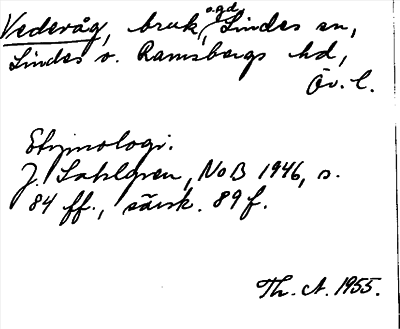 Vedevåg, bruk, o. gd, Lindes sn,
Lindes o. Ramsbergs hd,
Ör. l.
Etymologi.
J. Sahlgren, NoB 1946, s.
84 ff., särsk. 89 f.
Th. A. 1955.